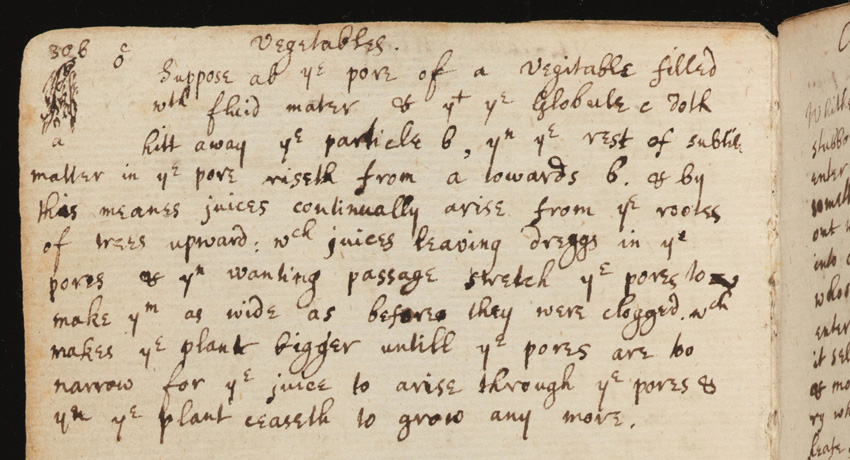 306 c Vegetables.
b Suppose ab yᵉ pore of a vegitable filled
wᵗʰ fluid mater & yᵗ yᵉ Globule c doth
a hitt away yᵉ particle b, yⁿ yᵉ rest of subtile
matter in yᵉ pore riseth from a towards b. & by
this meanes juices continually arise from yᵉ rootes
of trees upward: wᶜʰ juices leaving dreggs in yᵉ
pores & yⁿ wanting passage stretch yᵉ pores to
make yᵐ as wide as before they were clogged. wᶜʰ
makes yᵉ plant bigger untill yᵉ pores are too
narrow for yᵉ juice to arise through yᵉ pores &
yⁿ yᵉ plant ceaseth to grow any more.
enter
out
into
enter
it